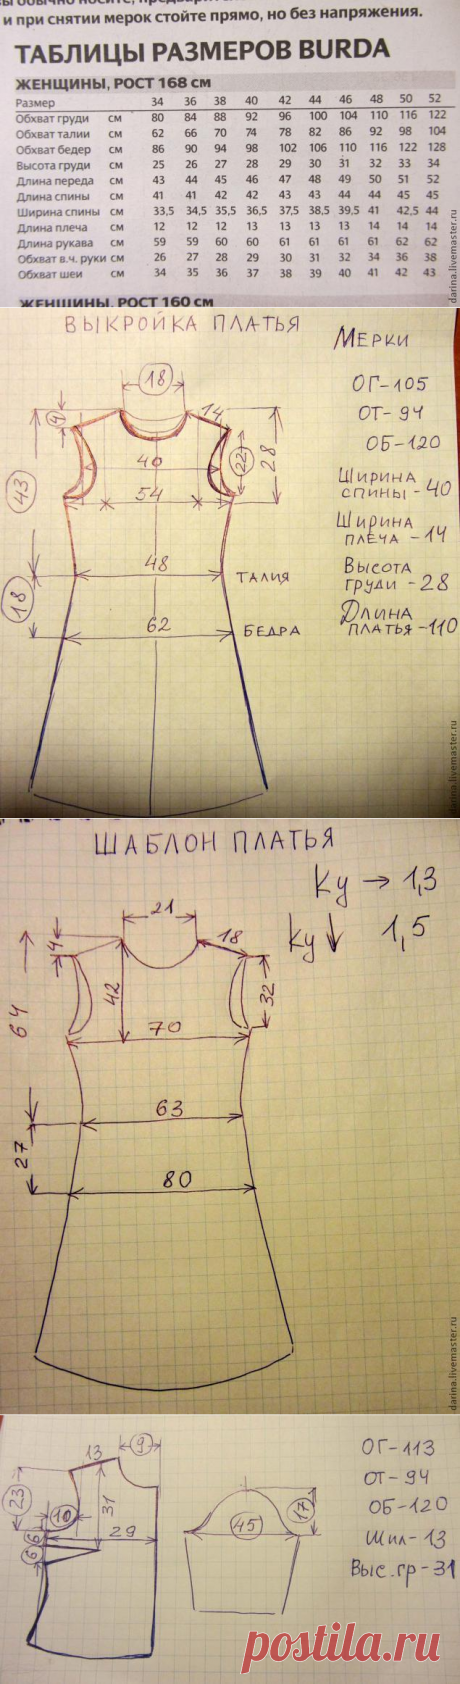 и при снятии мерок стойте прямо, но без напряжения.
ТАБЛИЦЫ РАЗМЕРОВ BURDA
ЖЕНЩИНЫ, РОСТ 168 см
Размер 34 36 38 40 42 44 46 48 50 52
Обхват груди см 80 84 88 92 96 100 104 110 116 122
Обхват талии см 62 66 70 74 78 82 86 92 98 104
Обхват бедер см 86 90 94 98 102 106 110 116 122 128
Высота груди см 25 26 27 28 29 30 31 32 33 34
Длина переда см 43 44 45 46 47 48 49 50 51 52
Длина спины см 41 41 42 42 43 43 44 44 45 45
Ширина спины см 33,5 34,5 35,5 36,5 37,5 38,5 39,5 41 42,5 44
Длина плеча см 12 12 12 13 13 13 13 14 14 14
Длина рукава см 59 59 60 60 61 61 61 61 62 62
Обхват в.ч. руки см 26 27 28 29 30 31 32 34 36 38
Обхват шеи см 34 35 36 37 38 39 40 41 42 43
ЖЕНЩИНЫ, РОСТ 160 см
darina.livemaster.ru
ВЫКРОЙКА ПЛАТЬЯ
МЕРКИ
18
ОГ-105
4
14
ОТ-94
ОБ-120
40
22
28
ШИРИНА
СПИНЫ - 40
43
54
ШИРИНА
ПЛЕЧА - 14
48
ТАЛИЯ
ВЫСОТА
ГРУДИ - 28
18
62
БЕДРА
ДЛИНА
ПЛАТЬЯ - 110
darina.livemaster.ru
ШАБЛОН ПЛАТЬЯ
Ку → 1,3
21
Ку ↓ 1,5
4
18
64
42
32
70
63
27
80
darina.livemaster.ru
9
13
ОГ-113
23
31
ОТ-94
10
17
ОБ-120
6
29
45
Шпл-13
6
Выс.гр-31
darina.livemaster.ru
postila.ru